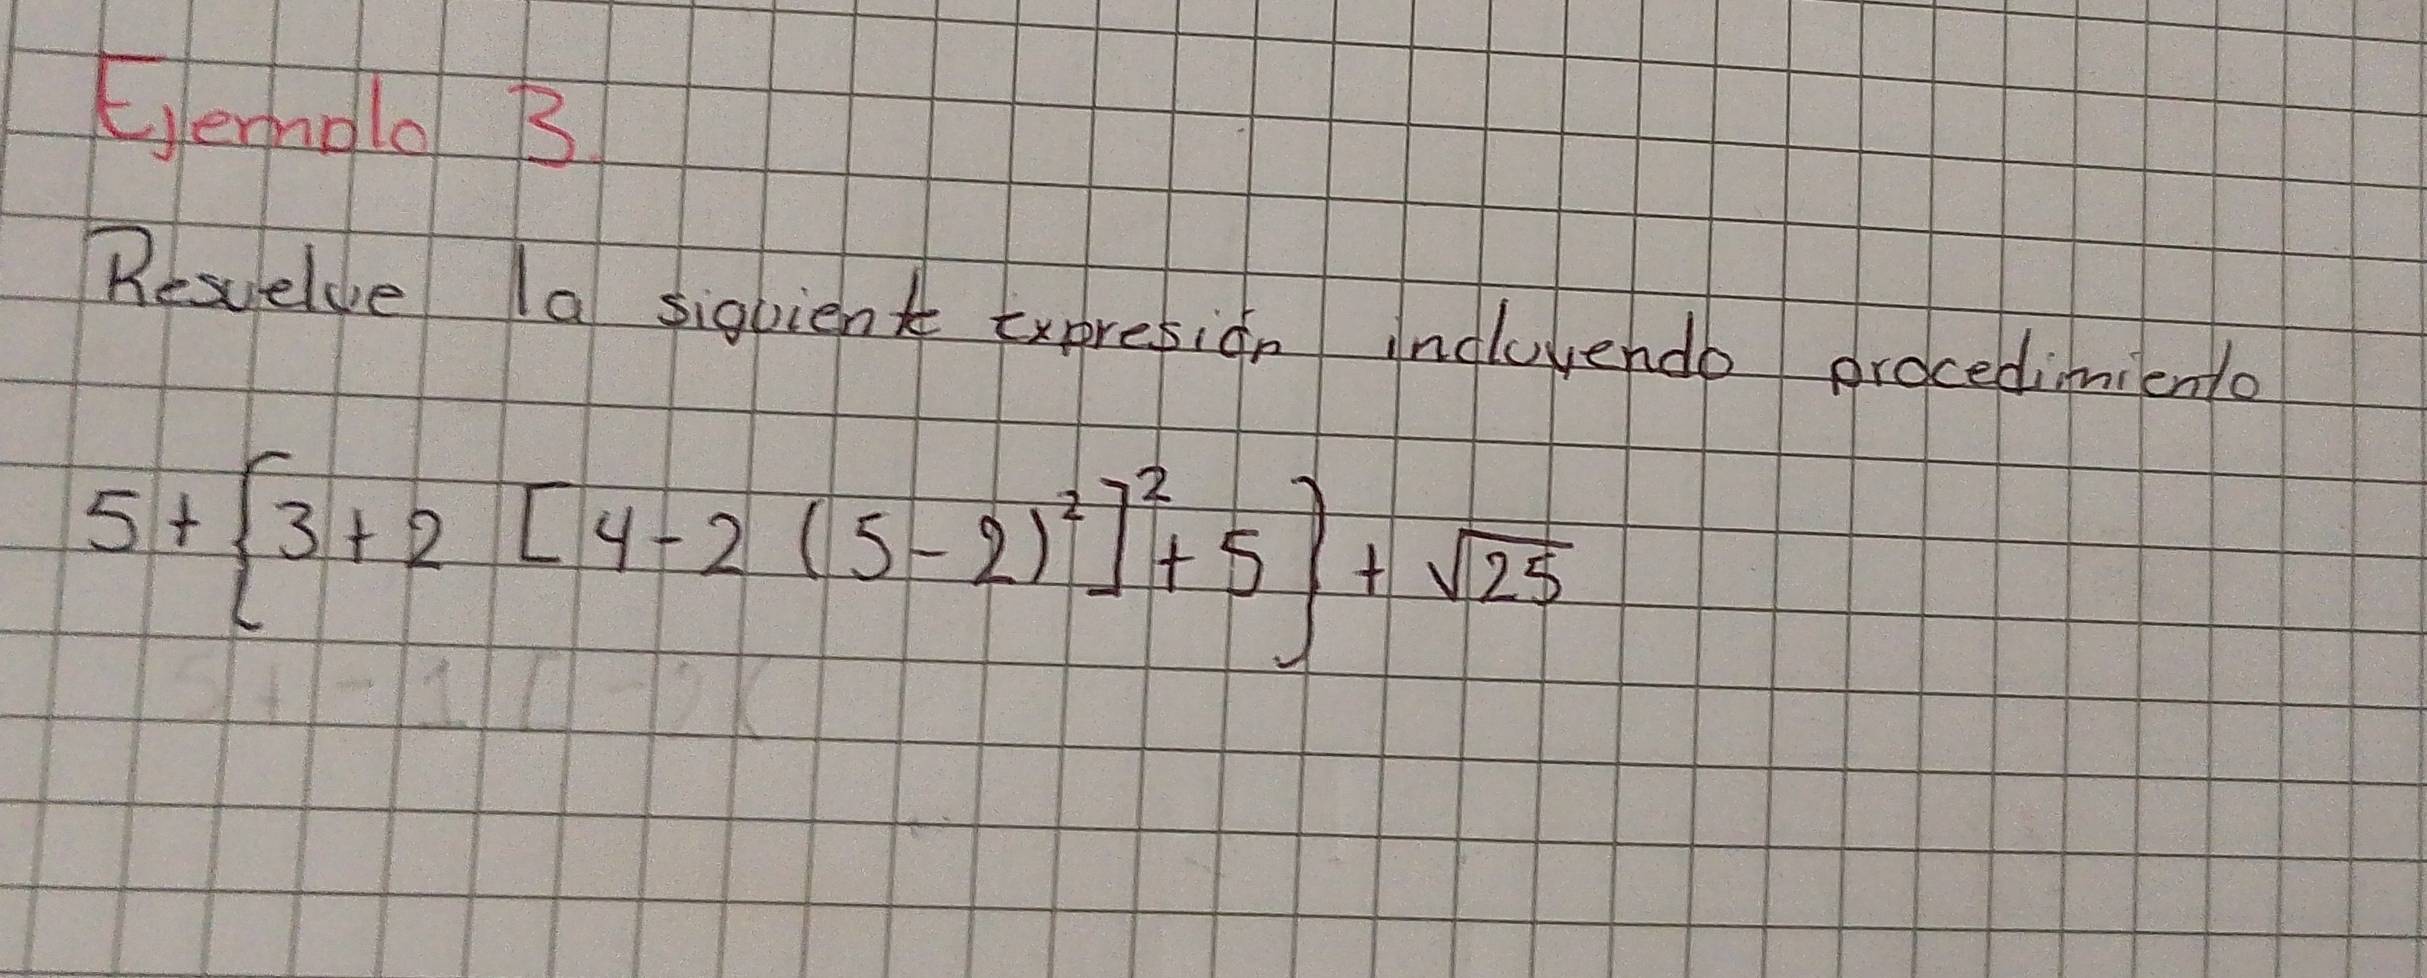 Ejemplo 3.
Resuelve la siguiente expresión incluyendo procedimiento
5+{3+2 [4-2 (5-2)²]²+5}+√25